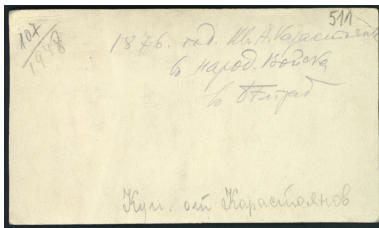 511
107
1948
1876. год. Ив. А. Карастоянов
в народ. войска
в Бѣлград
Куп. от Карастоянов